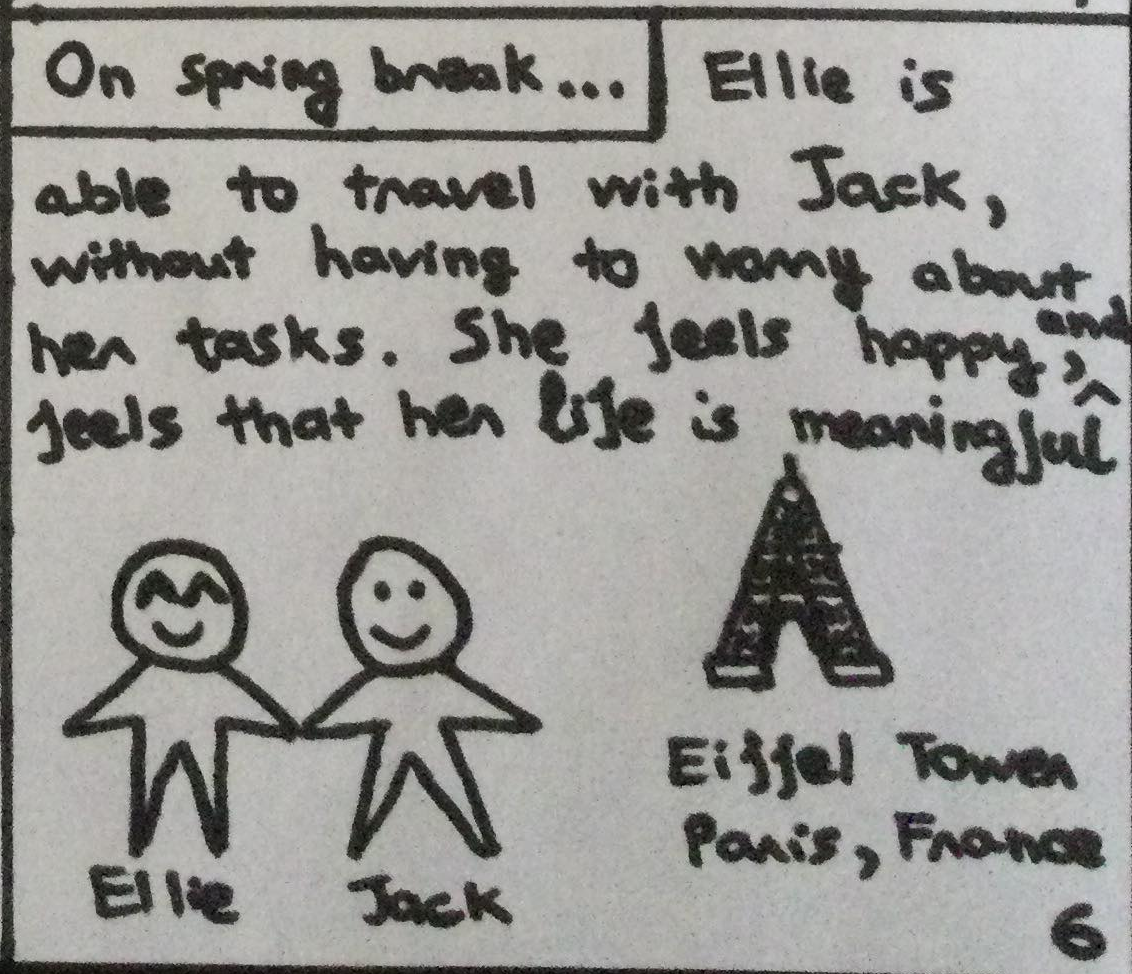 On spring break...
Ellie is
able to travel with Jack,
without having to worry about
her tasks. She feels happy, and
feels that her life is meaningful
Eiffel Tower
Paris, France
Ellie
Jack
6